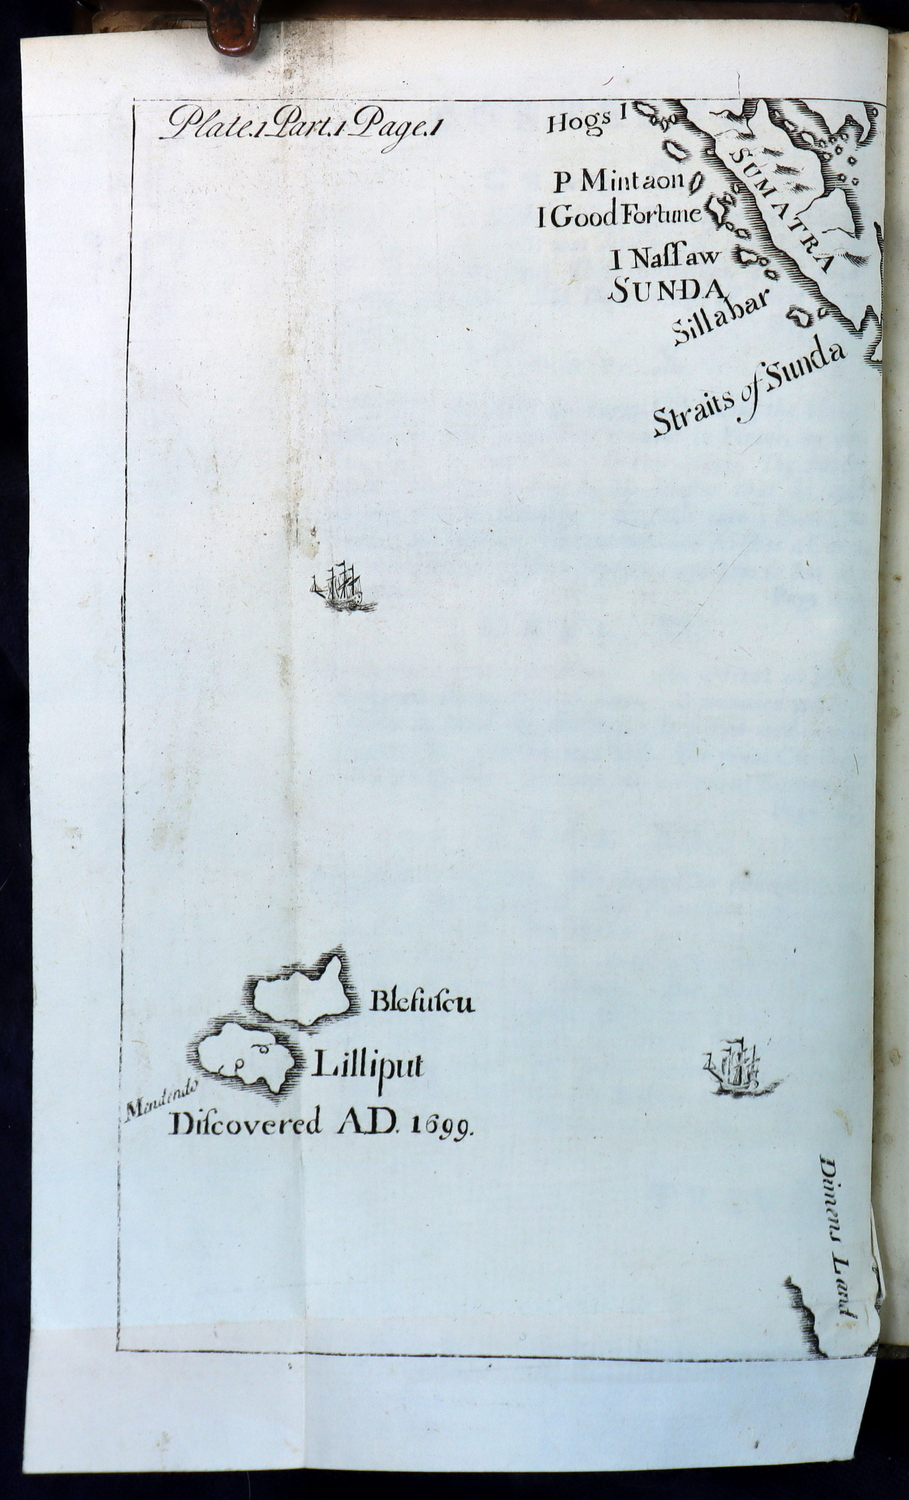 Plate.1.Part.1.Page.1
Hogs I
SUMATRA
P Mintaon
I Good Fortune
I Naſſaw
SUNDA
Sillabar
Straits of Sunda
Blefuſcu
Lilliput
Mendendo
Diſcovered AD. 1699.
Dimens Land